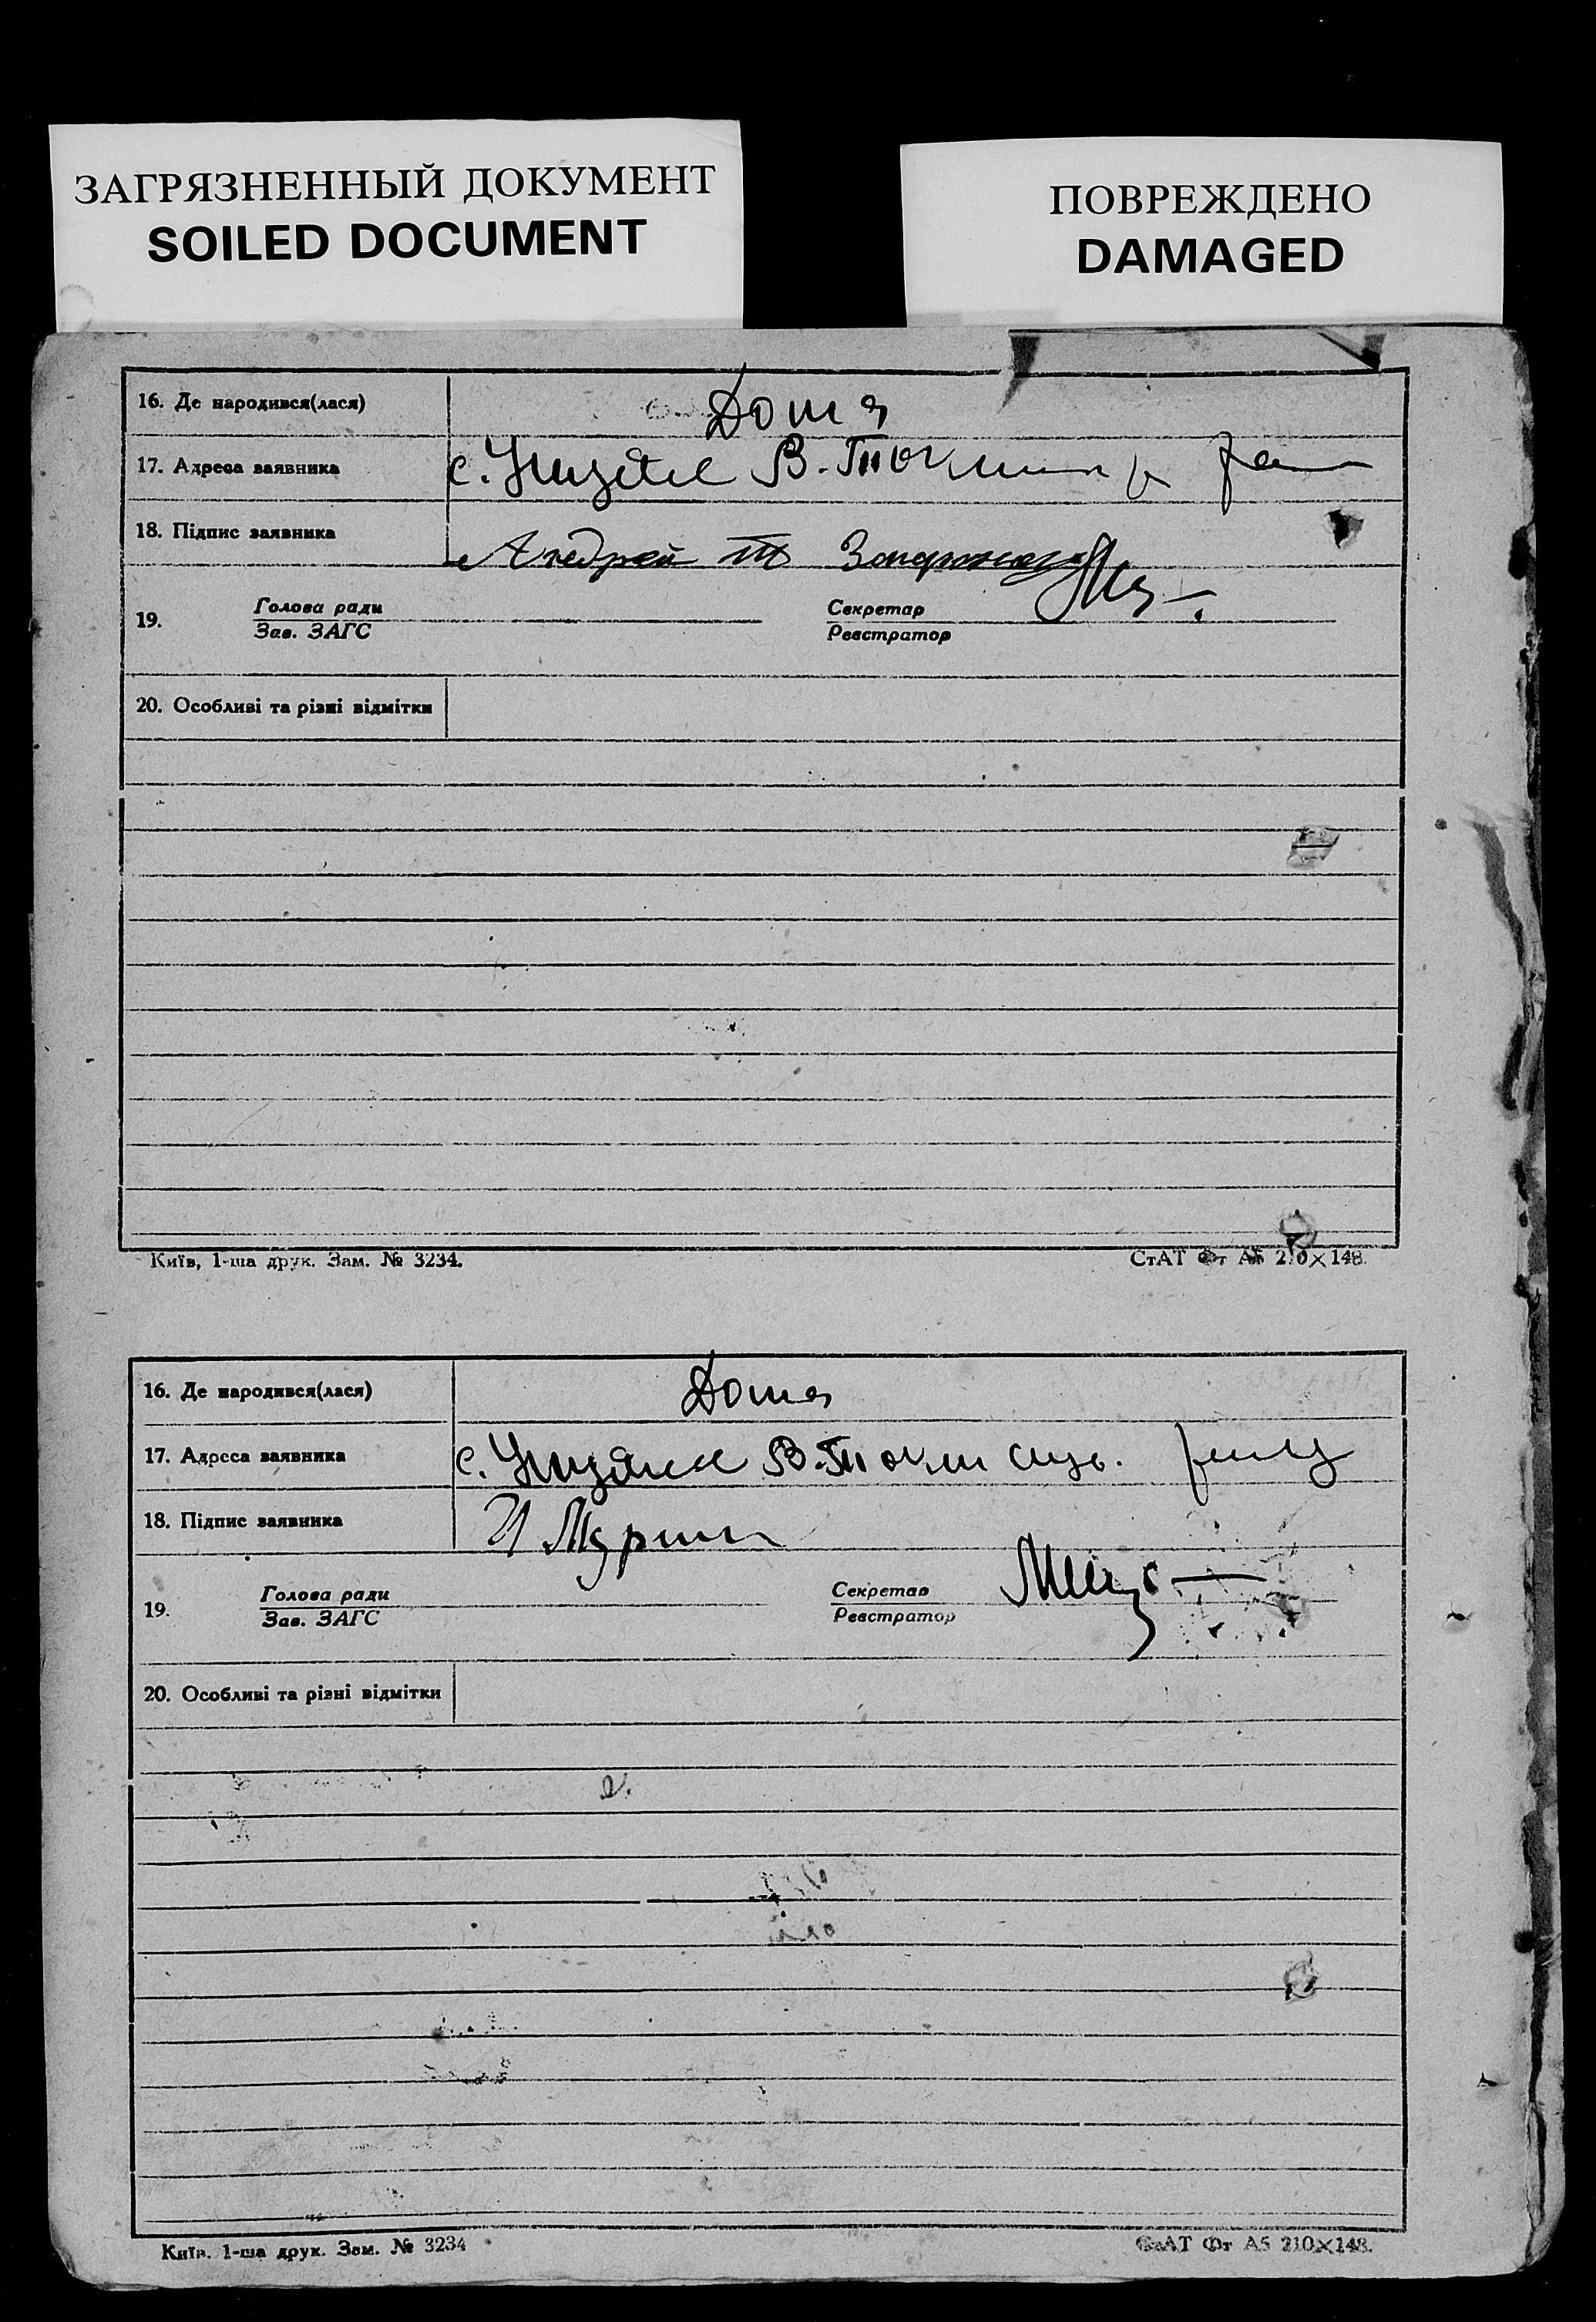 ЗАГРЯЗНЕННЫЙ ДОКУМЕНТ
SOILED DOCUMENT
ПОВРЕЖДЕНО
DAMAGED
16. Де народився(лася) Дома
17. Адреса заявника с. В.-Ток
18. Підпис заявника Андрей
19. Голова ради Секретар
Зав. ЗАГС Реєстратор
20. Особливі та різні відмітки
Київ, 1-ша друк. Зам. № 3234. СтАТ Фт А5 210×148.
16. Де народився(лася) Дома
17. Адреса заявника с. В.-Ток
18. Підпис заявника
19. Голова ради Секретар
Зав. ЗАГС Реєстратор
20. Особливі та різні відмітки
Київ. 1-ша друк. Зам. № 3234 СтАТ Фт А5 210×148.